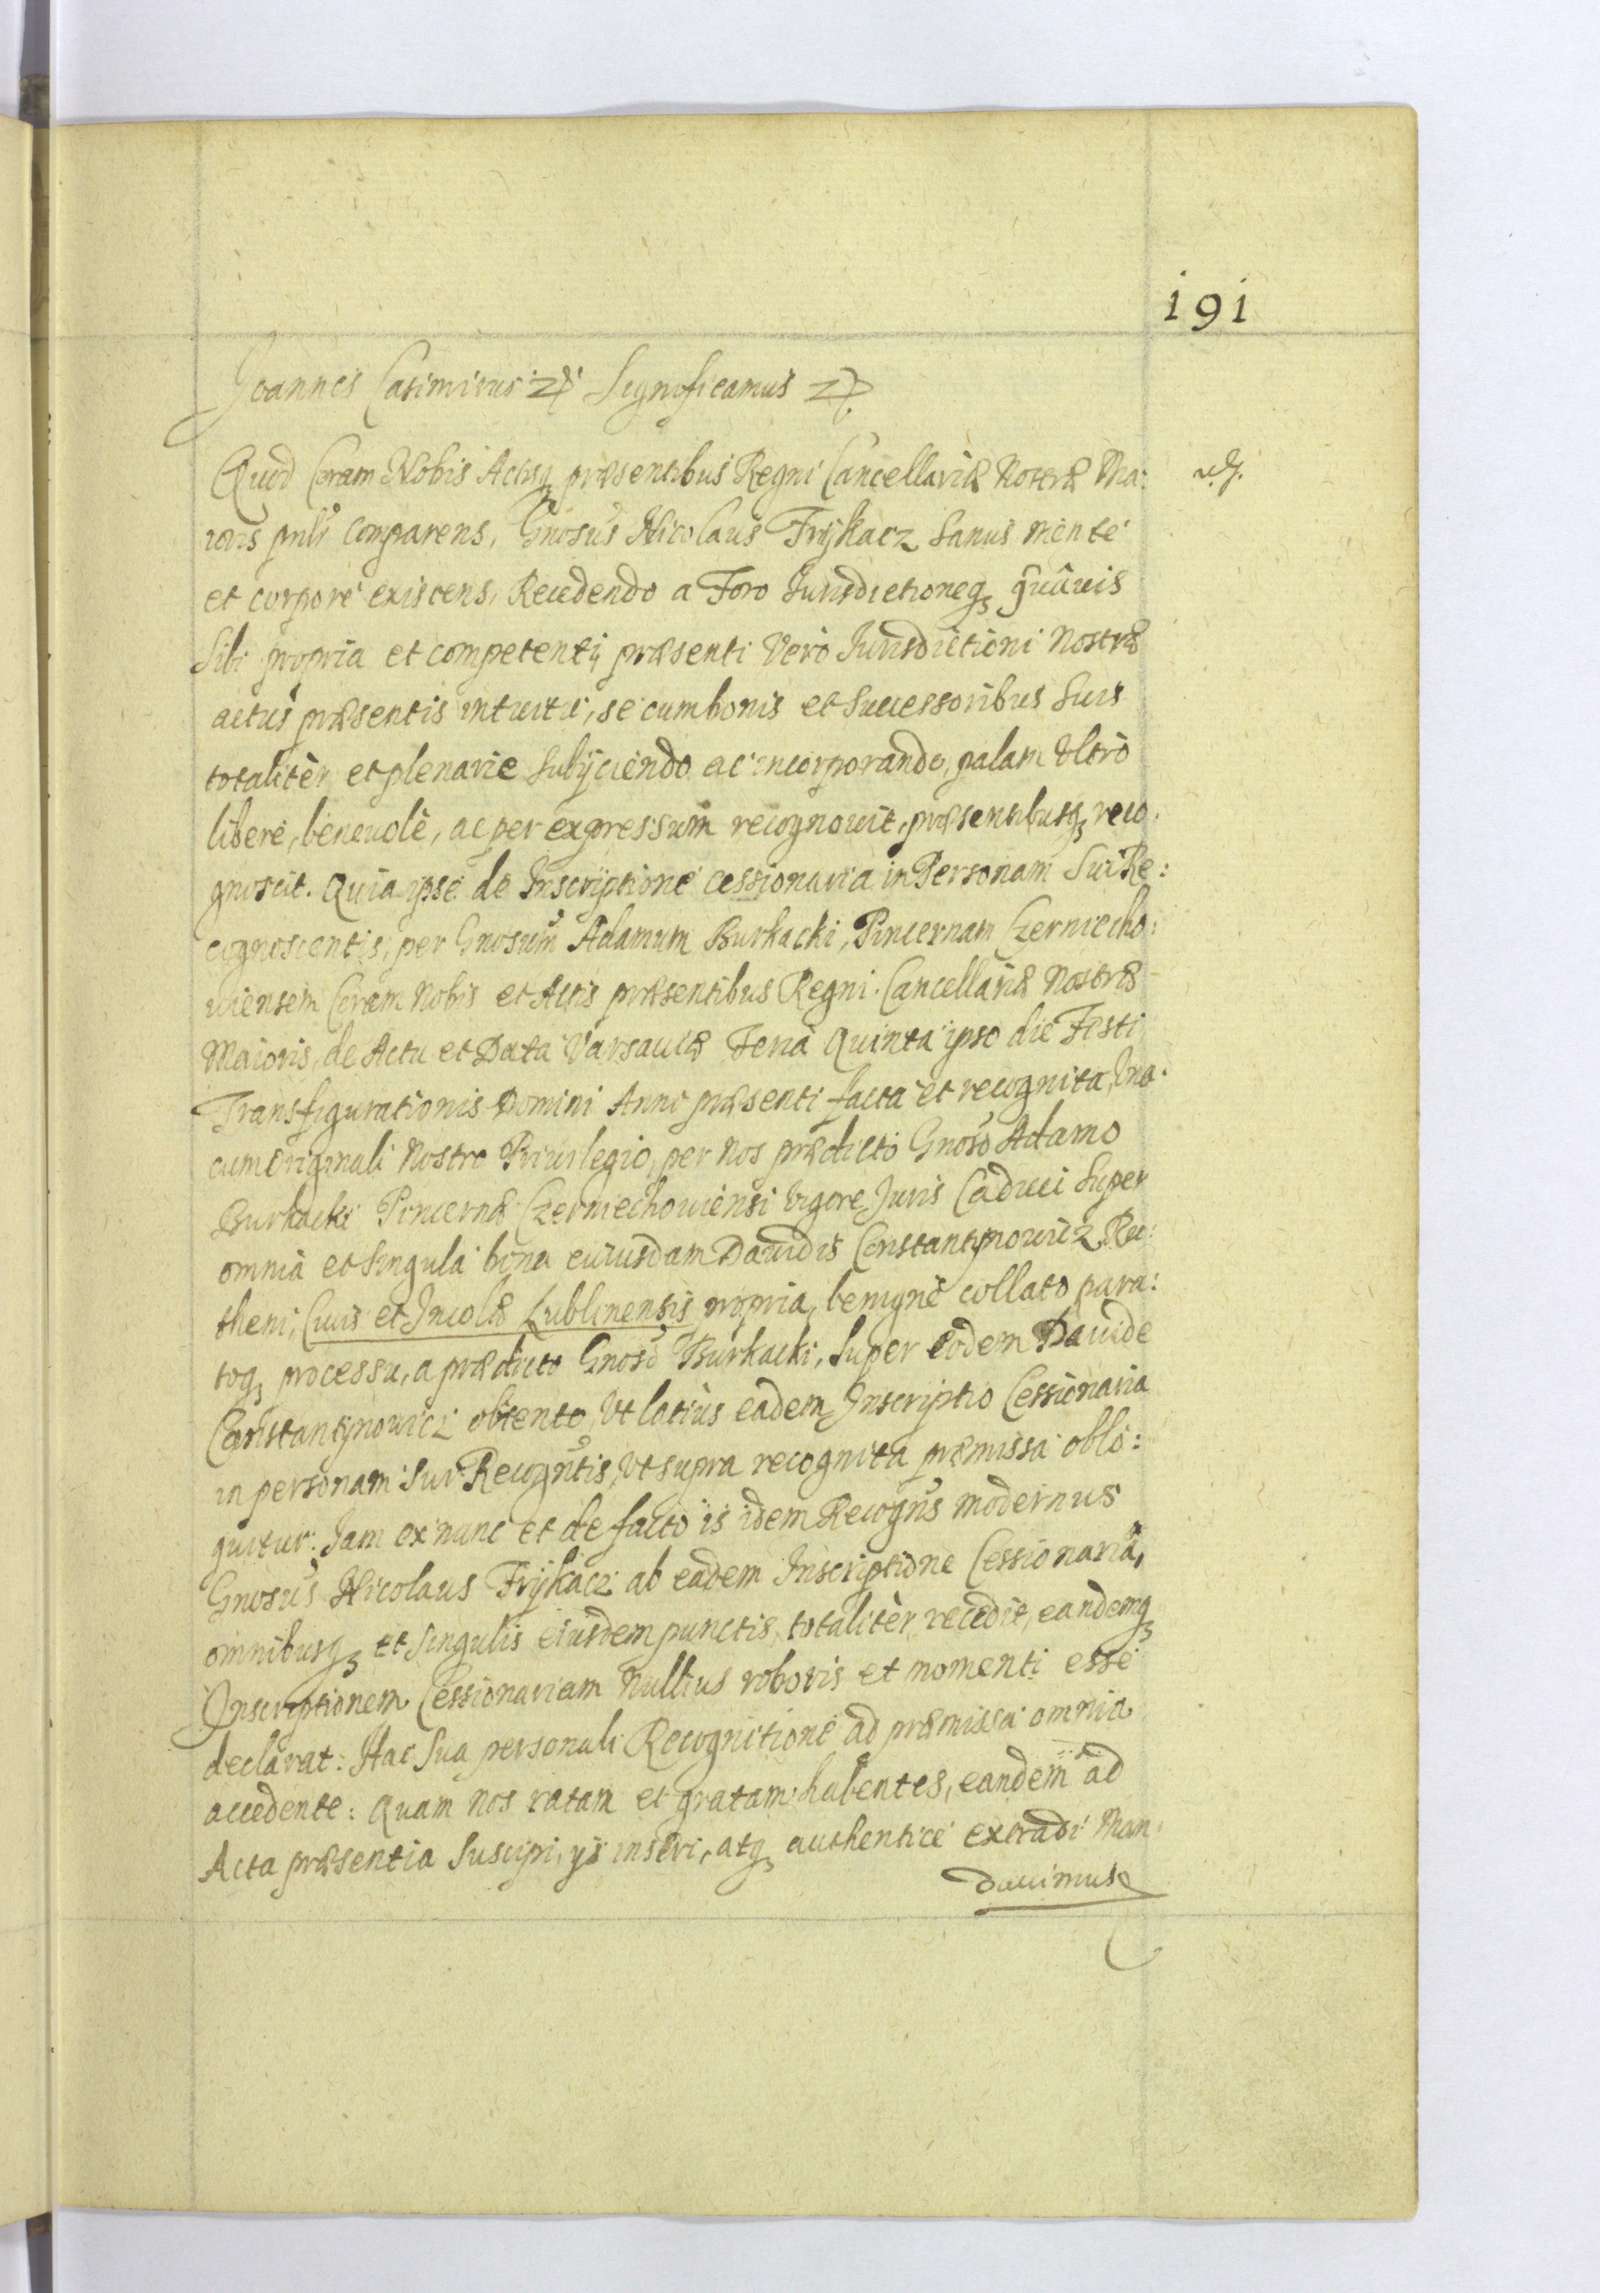 191
Joannes Casimirus Significamus
Quod Coram Nobis Actisq præsentibus Regni Cancellariæ Nostræ Ma:
ioris comparens, Gnosus Nicolaus Frijkacz Sanus mente
et corpore existens, Recedendo a Foro Jurisdictioneq quâuis
Sibi propria et competentij præsenti Verò Jurisdictioni Nostræ
actus præsentis intuitu, se cum bonis et Successoribus Suis
totalitèr et plenarie Subijciendo ac incorporando, palam Vltrò
liberè, beneuolè, ac per expressum recognouit, præsentibusq reco:
gnoscit. Quia ipse de Inscriptione cessionaria in Personam Sui Re:
cognoscentis, per Gnosum Adamum Burkacki, Pincernam Czerniecho:
uiensem Coram Nobis et Actis præsentibus Regni Cancellariæ Nostræ
Maioris, de Actu et Data Varsauiæ Feria Quinta ipso die Festi
Transfigurationis Domini Anni præsenti facta et recognita, Vna
cum Originali Nostro Priuilegio, per Nos prædicto Gnoso Adamo
Burkacki Pincernæ Czerniechouiensi Vigore Juris Caduci Super
omnia et Singula bona cuiusdam Dauidis Constantynowicz Ru:
theni, Ciuis et Incolæ Lublinensis propria, benignè collato para:
toq processu, a prædicto Gnoso Burkacki, Super eodem Dauide
Constantynowicz obtento, Vt latius eadem Inscriptio Cessionaria
in personam Sui Recogntis, Vt supra recognita præmissa oblo:
quitur: Jam ex nunc et de facto is idem Recogns modernus
Gnosus Nicolaus Frijkacz ab eadem Inscriptione Cessionaria,
omnibusq et Singulis eiusdem punctis, totalitèr recedit, eandemq
Inscriptionem Cessionariam Nullius roboris et momenti esse
declarat: Hac Sua personali Recognitione ad præmissa omnia
accedente: Quam Nos ratam et gratam habentes, eandem ad
Acta præsentia Suscipi, ijs inseri, atq authenticè extradi Man:
dauimus